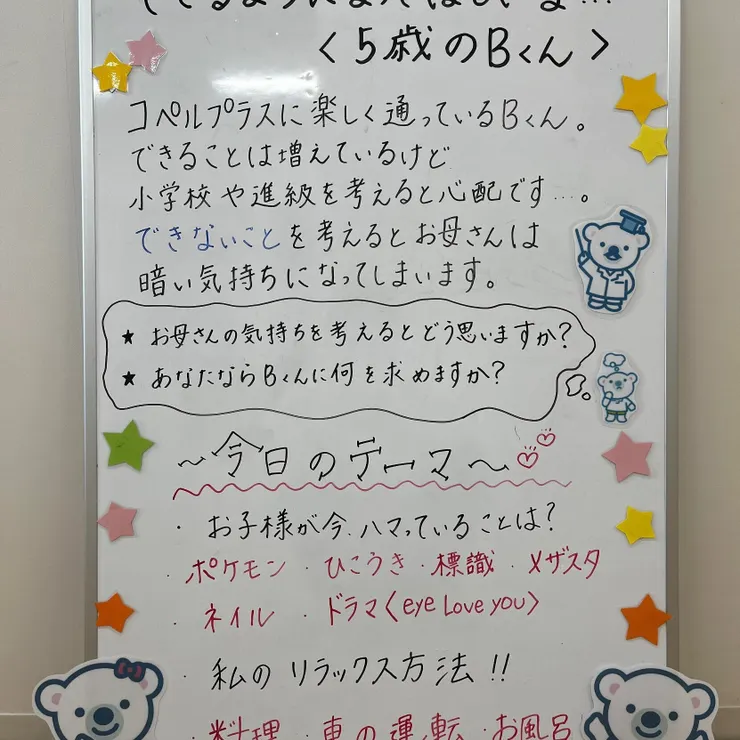 できるようになってほしいな…
〈5歳のBくん〉
コペルプラスに楽しく通っているBくん。
できることは増えているけど
小学校や進級を考えると心配です…。
できないことを考えるとお母さんは
暗い気持ちになってしまいます。
★ お母さんの気持ちを考えるとどう思いますか?
★ あなたならBくんに何を求めますか?
~今日のテーマ~
・お子様が今、ハマっていることは?
・ポケモン ・ひこうき ・標識 ・メザスタ
・ネイル ・ドラマ〈eye Love you〉
・私のリラックス方法!!
・料理 ・車の運転 ・お風呂